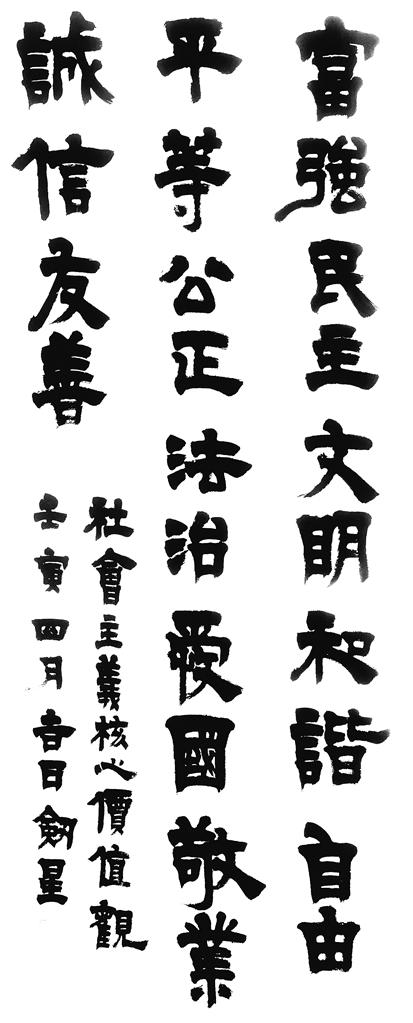 富強民主文明和諧自由
平等公正法治愛國敬業
誠信友善
社會主義核心價值觀
壬寅四月吉日劍星